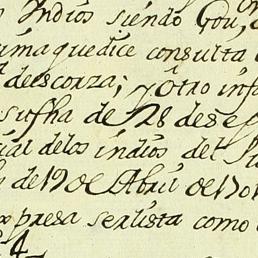 Indios siendo Gov.
uma que dice consulta
de escorza; y otro inf
su fha de 28 de se
ial de los indios del Pu
de 19 de Abril de 1701
expresa ser lista como
4